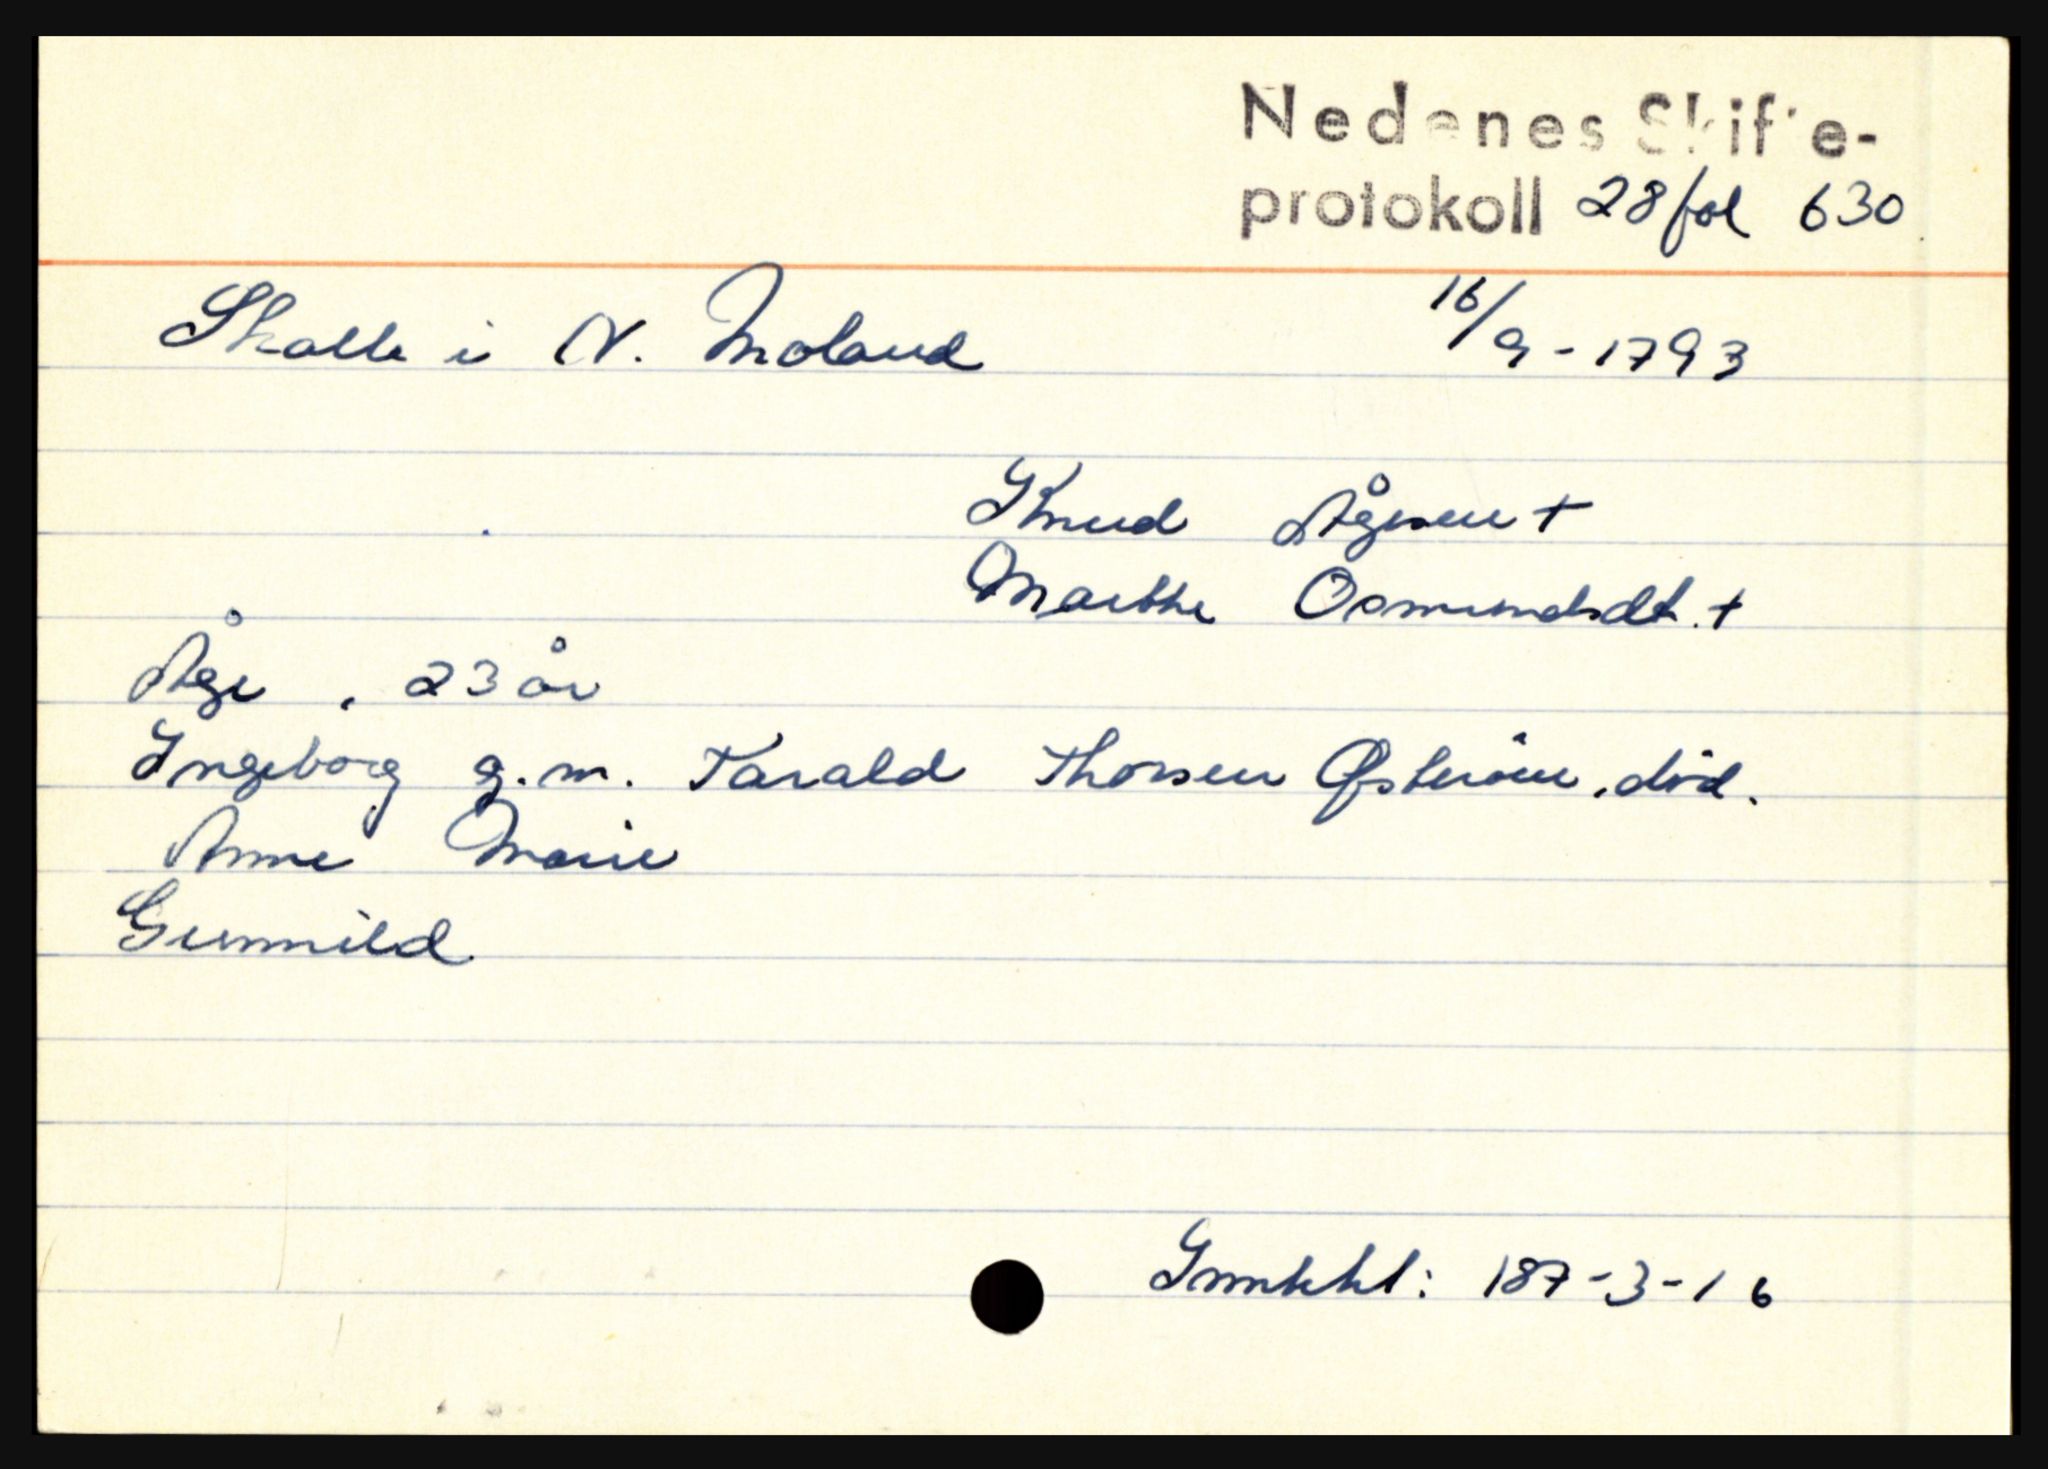 Nedenes Skifte-
protokoll 28 fol 630
Skalle i N. Moland 16/9-1793
Knud Ågesen +
Marthe Osmundsdt. +
Åge, 23 år
Ingeborg g.m. Tarald Thorsen død.
Anne Marie
Gunnild
187-3-16